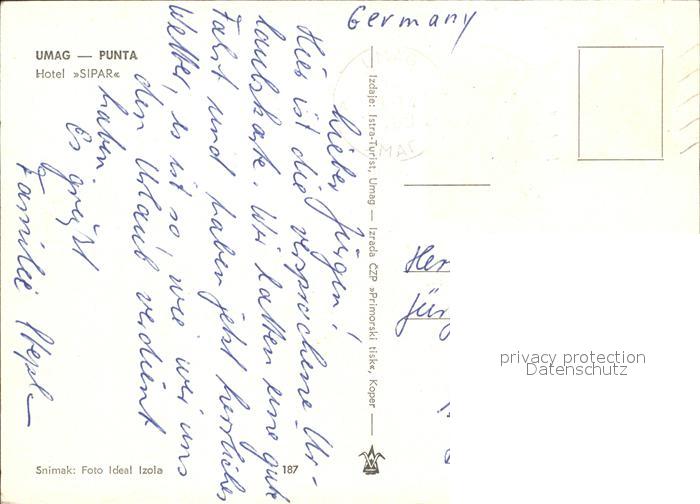 Germany
UMAG — PUNTA
Hotel »SIPAR«
Lieber Jürgen!
Hier ist die versprochene Ur-
laubskarte. Wir hatten eine gute
Fahrt und haben jetzt herrliches
Wetter, es ist so, wie wir uns
den Urlaub verdient
haben.
Es grüßt
Familie
Izdaje: Istra-Turist, Umag — Izrada ČZP »Primorski tisk«, Koper
Her
Jürg
privacy protection
Datenschutz
Snimak: Foto Ideal Izola
187